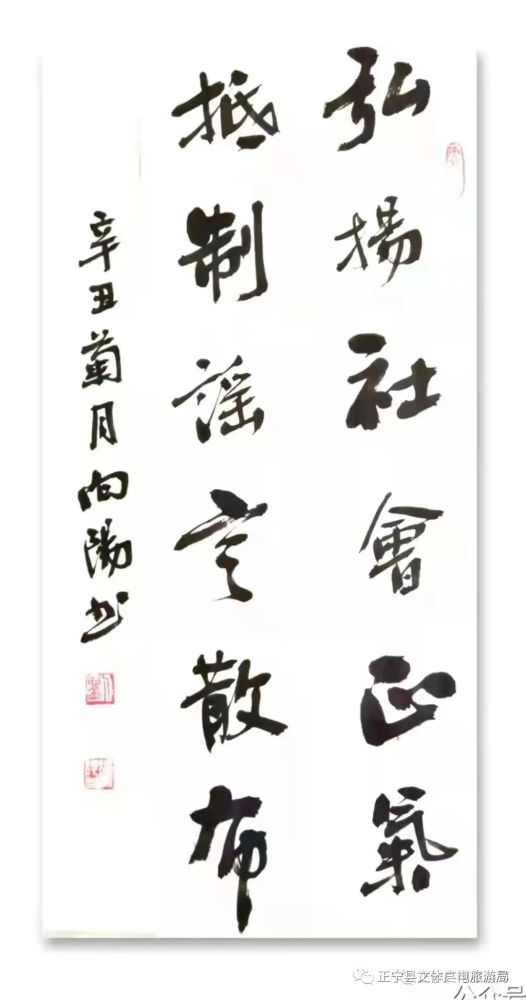 弘揚社會正氣
抵制謡言散布
辛丑菊月向陽书
正宁县文体广电旅游局
公众号